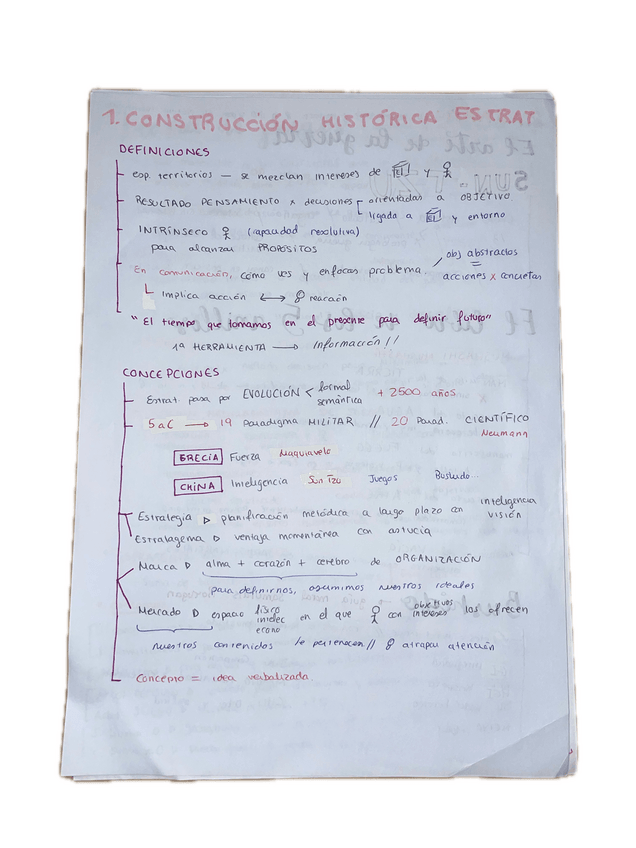 1. CONSTRUCCIÓN HISTÓRICA ESTRAT
DEFINICIONES
esp. territorios — se mezclan intereses de y
RESULTADO PENSAMIENTO x decisiones orientadas a OBJETIVO
ligada a y entorno
INTRÍNSECO (capacidad resolutiva)
para alcanzar PROPÓSITOS
En comunicación, cómo ves y enfocas problema. obj abstractos
=
acciones x concretas
Implica acción ↔ reacción
"El tiempo que tomamos en el presente para definir futuro"
1ª HERRAMIENTA → Información!!
CONCEPCIONES
Estrat. pasa por EVOLUCIÓN < formal
semántica + 2500 años
5 a C → 19 Paradigma MILITAR // 20 Parad. CIENTÍFICO
Neumann
GRECIA Fuerza Maquiavelo
CHINA Inteligencia Sun Tzu Juegos Bushido.
Estrategia ▷ planificación metódica a largo plazo con inteligencia
VISIÓN
Estratagema ▷ ventaja momentánea con astucia
Marca ▷ alma + corazón + cerebro de ORGANIZACIÓN
para definirnos, asumimos nuestros ideales
Mercado ▷ espacio físico
intelec
econo en el que con objetivos
intereses los ofrecen
nuestros contenidos le pertenecen // atrapar atención
Concepto = idea verbalizada